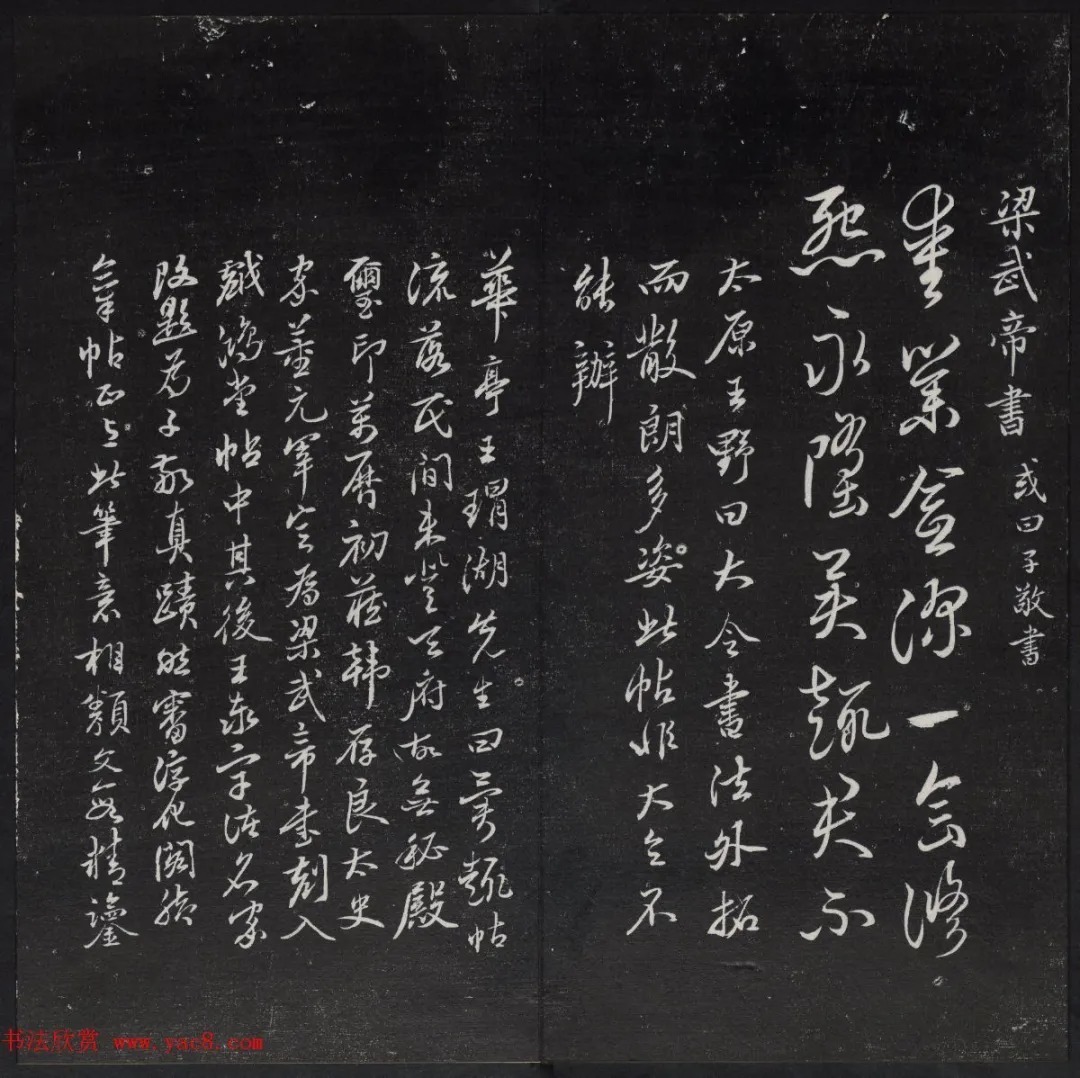 梁武帝書 或曰子敬書
愛業愈深一念修
怨永墮異趣君不
太原王野曰大令書法外拓
而散朗多姿此帖非大令不
能辦
華亭王瑁湖先生曰異趣帖
流落民間未登天府故無秘殿
璽印萬曆初藏韓存良太史
家董元宰定為梁武帝書刻入
戲鴻堂帖中其後王泰宇諸名家
改題為子敬真蹟然審淳化閣
帖正與此筆意相類文敏精鑒
书法欣赏 www.yac8.com